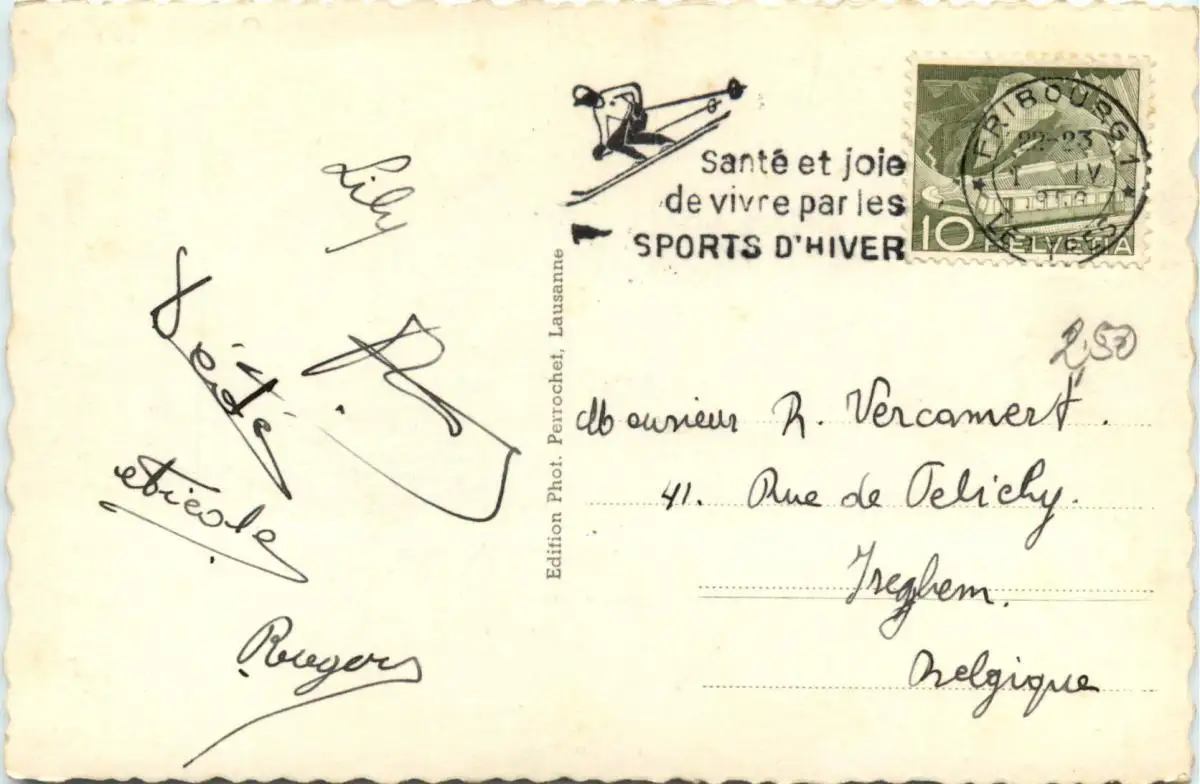 Lily
Rogers
Santé et joie
de vivre par les
SPORTS D'HIVER
FRIBOURG 1
22-23
IV
10 HELVETIA
Edition Phot. Perrochet, Lausanne
2.50
Monsieur R. Vercamert.
41. Rue de Pelichy.
Iseghem.
Belgique